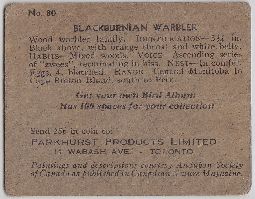 No. 80
BLACKBURNIAN WARBLER
Wood warbler family. IDENTIFICATION—5¼ in.
Black above, with orange throat and white belly.
HABITS—Mixed woods. VOICE—Ascending series
of "zwees" terminating in hiss. NEST—In conifer.
Eggs, 4, blotched. RANGE—Central Manitoba to
Cape Breton Island, south to
Get your own Bird Album
Has 100 spaces for your collection
Send 25¢ in coin to:
PARKHURST PRODUCTS LIMITED
WABASH AVE. - TORONTO
Paintings and descriptions courtesy Audubon Society
of Canada as published in Canadian Nature Magazine.